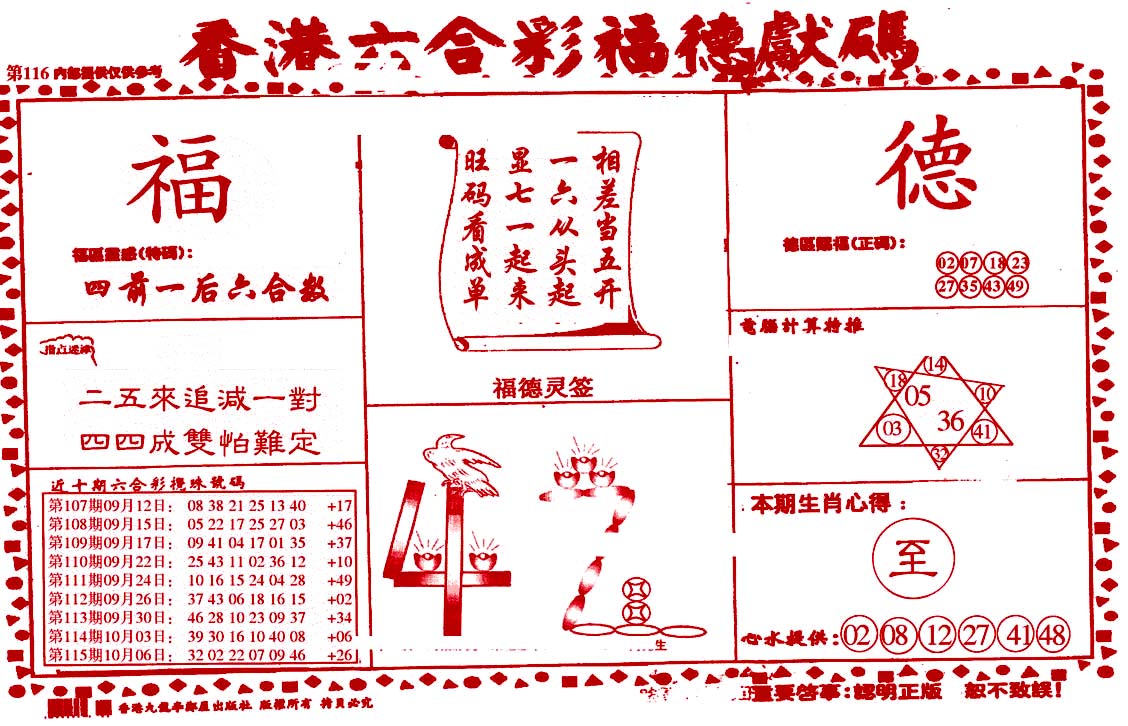 香港六合彩福德獻碼
第116 内部提供仅供参考
福
福區靈感(特碼):
四前一后六合数
指点迷津
二五來追減一對
四四成雙怕難定
近十期六合彩攪珠號碼
第107期09月12日: 08 38 21 25 13 40 +17
第108期09月15日: 05 22 17 25 27 03 +46
第109期09月17日: 09 41 04 17 01 35 +37
第110期09月22日: 25 43 11 02 36 12 +10
第111期09月24日: 10 16 15 24 04 28 +49
第112期09月26日: 37 43 06 18 16 15 +02
第113期09月30日: 46 28 10 23 09 37 +34
第114期10月03日: 39 30 16 10 40 08 +06
第115期10月06日: 32 02 22 07 09 46 +26
相差当五开
一六从头起
显七一起来
旺码看成单
福德灵签
生
德
德區賜福(正碼):
02 07 18 23
27 35 43 49
電腦計算特推
14
18
05
10
36
03
41
32
本期生肖心得:
至
心水提供: 02 08 12 27 41 48
重要啓事:認明正版 恕不致誤!
版權所有